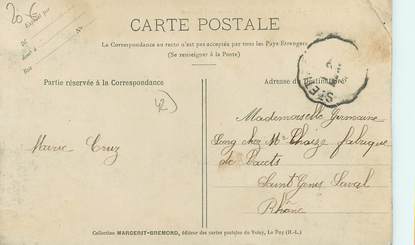 20
CARTE POSTALE
La Correspondance au recto n'est pas acceptée par tous les Pays Etrangers
(Se renseigner à la Poste)
Partie réservée à la Correspondance
Adresse du Destinataire
Mademoiselle Germaine
chez Mr fabrique
de
Marie Cruz
Saint Genis Laval
Rhône
Collection MARGERIT-BREMOND, éditeur des cartes postales du Velay, Le Puy (H.-L.)